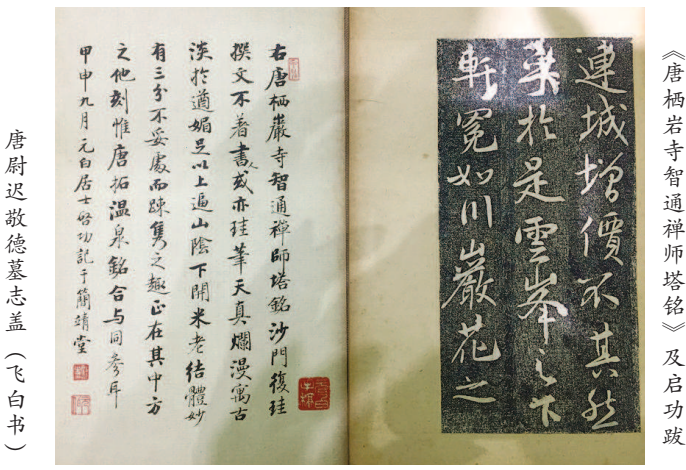 《唐栖岩寺智通禅师塔铭》及启功跋
連城增價不其然
矣於是雲峯之下
軒冕如川巖花之
右唐栖巖寺智通禪師塔銘沙門復珪
撰文不著書人或亦珪筆天真爛漫寓古
淡於遒媚足以上追山陰下開米老結體妙
有三分不妥處而踈雋之趣正在其中方
之他刻惟唐拓温泉銘合与同參耳
甲申九月元白居士啓功記于簡靖堂
唐尉迟敬德墓志盖（飞白书）